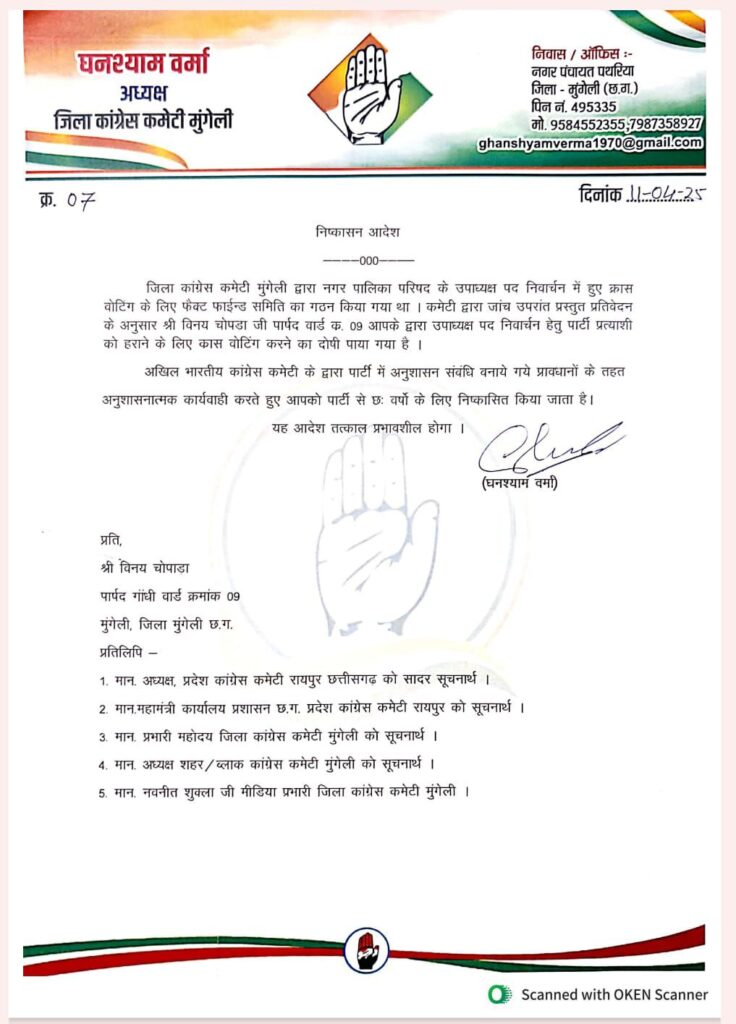 घनश्याम वर्मा
अध्यक्ष
जिला कांग्रेस कमेटी मुंगेली
निवास / ऑफिस :-
नगर पंचायत पथरिया
जिला - मुंगेली (छ.ग.)
पिन नं. 495335
मो. 9584552355,7987358927
ghanshyamverma1970@gmail.com
क्र. 07
दिनांक 11-04-25
निष्कासन आदेश
-----000-----
जिला कांग्रेस कमेटी मुंगेली द्वारा नगर पालिका परिषद के उपाध्यक्ष पद निर्वाचन में हुए क्रास
वोटिंग के लिए फैक्ट फाईन्ड समिति का गठन किया गया था । कमेटी द्वारा जांच उपरांत प्रस्तुत प्रतिवेदन
के अनुसार श्री विनय चोपडा जी पार्षद वार्ड क. 09 आपके द्वारा उपाध्यक्ष पद निर्वाचन हेतु पार्टी प्रत्याशी
को हराने के लिए कास वोटिंग करने का दोषी पाया गया है ।
अखिल भारतीय कांग्रेस कमेटी के द्वारा पार्टी में अनुशासन संबंधि बनाये गये प्रावधानों के तहत
अनुशासनात्मक कार्यवाही करते हुए आपको पार्टी से छः वर्षो के लिए निष्कासित किया जाता है।
यह आदेश तत्काल प्रभावशील होगा ।
(घनश्याम वर्मा)
प्रति,
श्री विनय चोपाडा
पार्षद गांधी वार्ड क्रमांक 09
मुंगेली, जिला मुंगेली छ.ग.
प्रतिलिपि –
1. मान. अध्यक्ष, प्रदेश कांग्रेस कमेटी रायपुर छत्तीसगढ़ को सादर सूचनार्थ ।
2. मान.महामंत्री कार्यालय प्रशासन छ.ग. प्रदेश कांग्रेस कमेटी रायपुर को सूचनार्थ ।
3. मान. प्रभारी महोदय जिला कांग्रेस कमेटी मुंगेली को सूचनार्थ ।
4. मान. अध्यक्ष शहर/ब्लाक कांग्रेस कमेटी मुंगेली को सूचनार्थ ।
5. मान. नवनीत शुक्ला जी मीडिया प्रभारी जिला कांग्रेस कमेटी मुंगेली ।
Scanned with OKEN Scanner